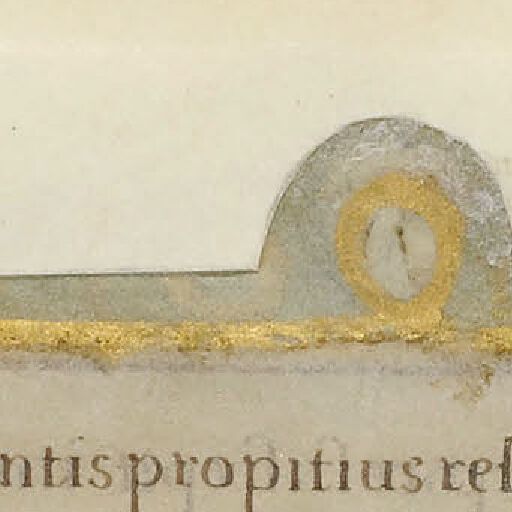 ntis propitius ref